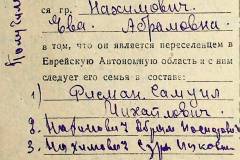 ся гр. Нахимович.
Ева Абрамовна
в том, что он является переселенцем в
Еврейскую Автономную область и с ним
следует его семья в составе:
1) Фисман Самуил
Михайлович
2.
3. Нахимович